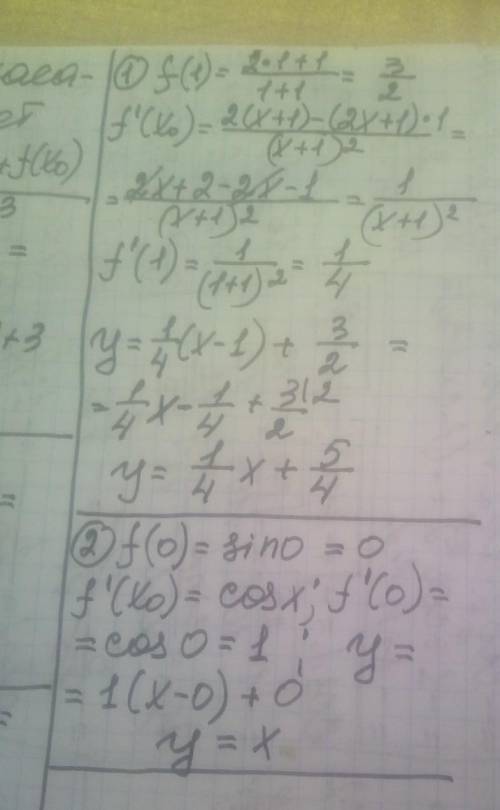 ① f(1) = (2·1+1)/(1+1) = 3/2
f'(x₀) = (2(x+1)-(2x+1)·1)/(x+1)² =
= (2x+2-2x-1)/(x+1)² = 1/(x+1)²
f'(1) = 1/(1+1)² = 1/4
y = 1/4(x-1) + 3/2 =
= 1/4 x - 1/4 + 3|2/2
y = 1/4 x + 5/4
② f(0) = sin0 = 0
f'(x₀) = cosx; f'(0) =
= cos0 = 1; y =
= 1(x-0) + 0
y = x
ет
+f(x₀)
3
=
+3
=
=